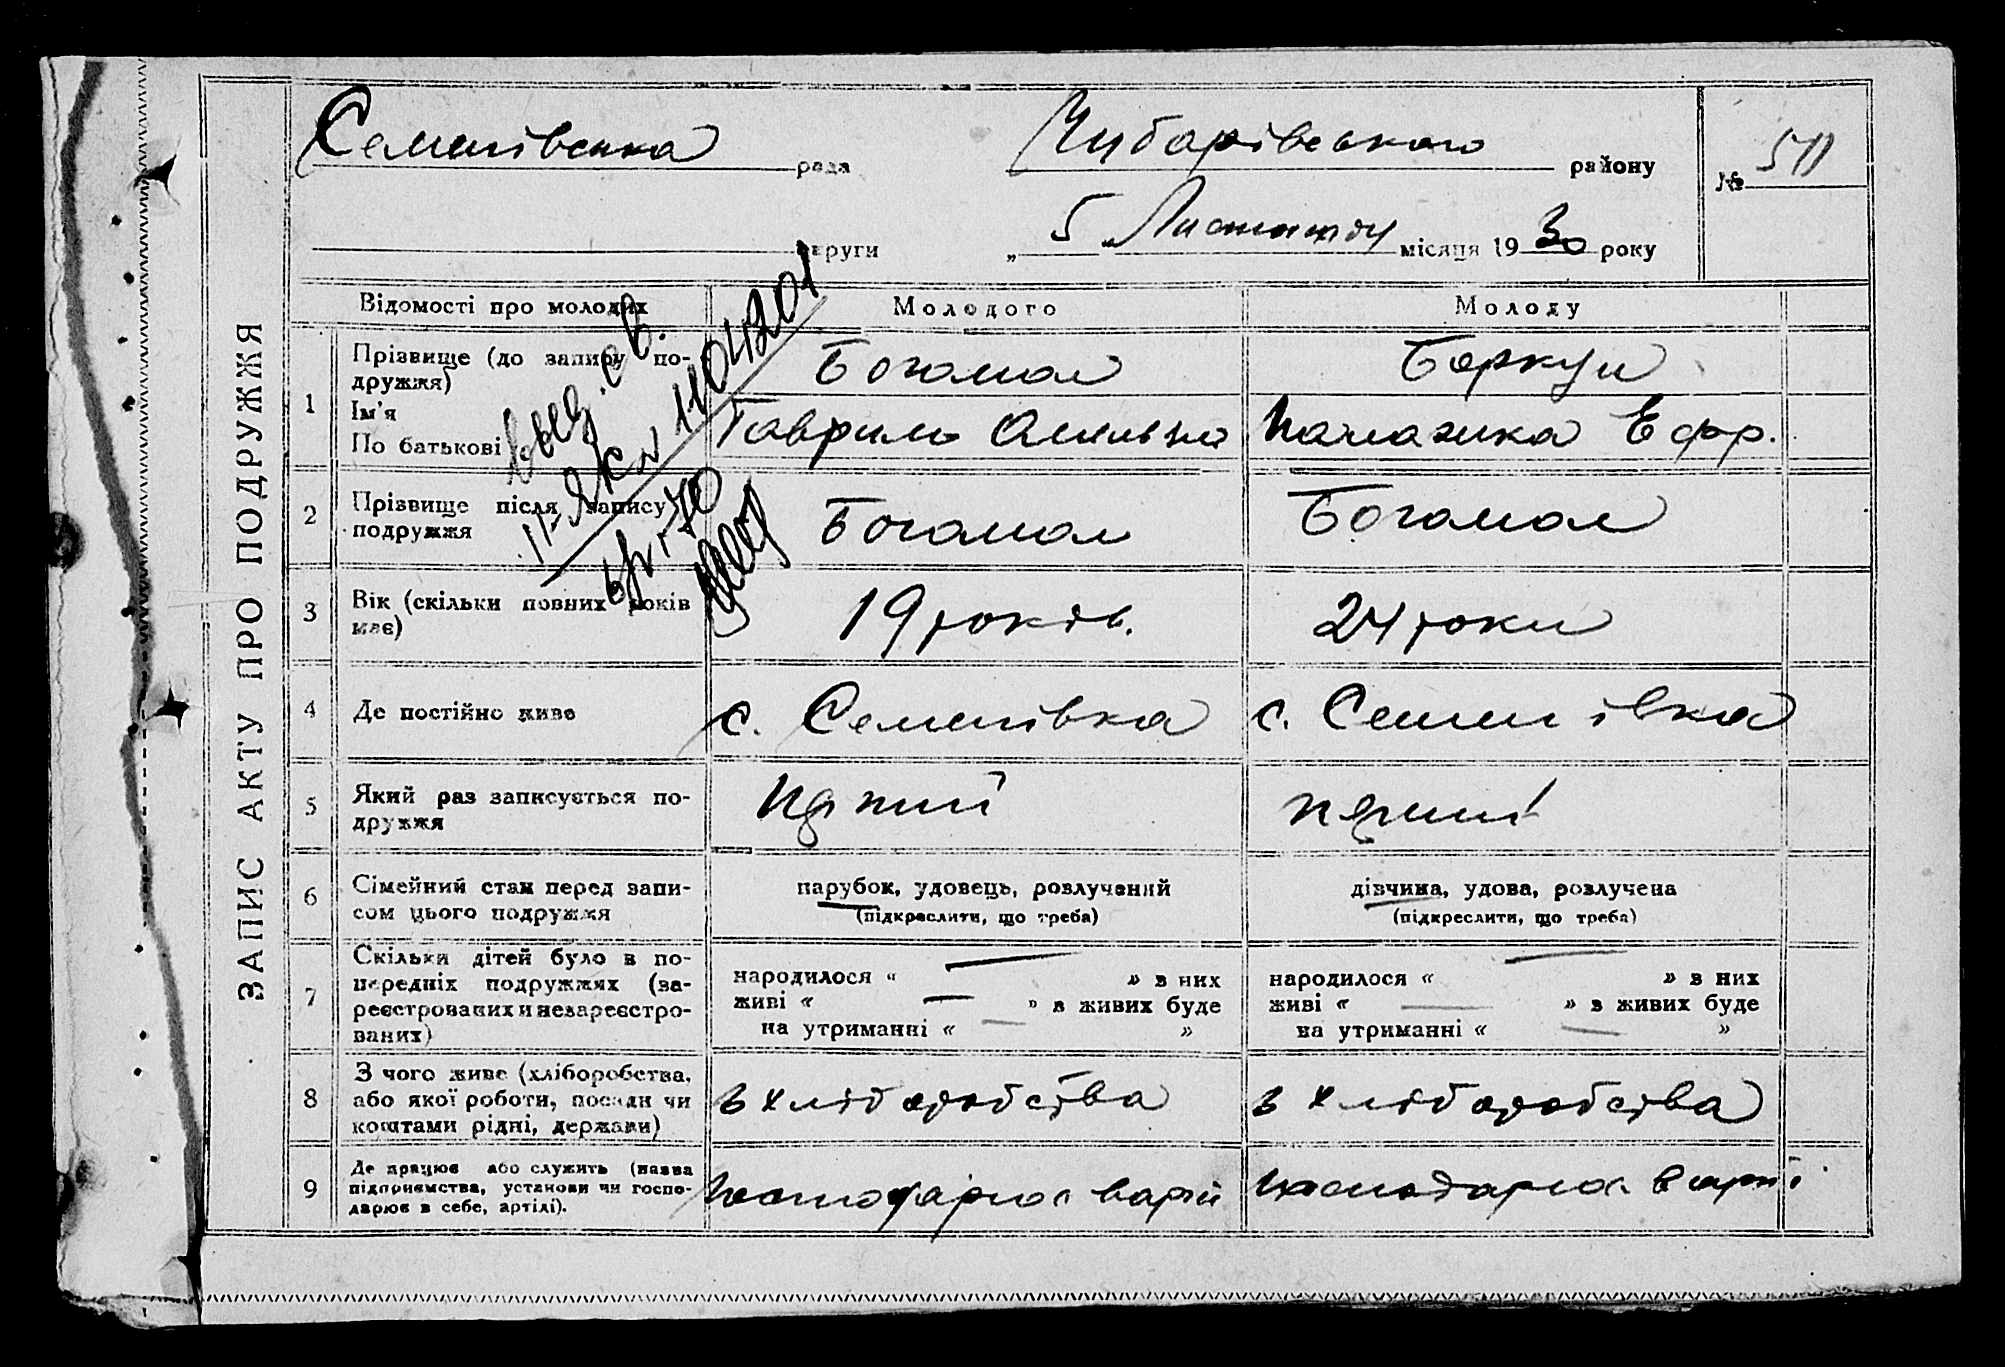 ЗАПИС АКТУ ПРО ПОДРУЖЖЯ
Семенівська рада Чубарівського району № 511
округи „5„ Листопаду місяця 1930 року
Відомості про молодих Молодого Молоду
1 Прізвище (до запису по-
дружжя) Богомол Боркун
Ім'я
По батькові Гаврило Палажка Ефр.
2 Прізвище після запису
подружжя Богомол Богомол
3 Вік (скільки повних років
має) 19 років. 24 роки
4 Де постійно живе с. Семенівка с. Семенівка
5 Який раз записується по-
дружжя перший
6 Сімейний стан перед запи-
сом цього подружжя
парубок, удовець, розлучений
(підкреслити, що треба)
дівчина, удова, розлучена
(підкреслити, що треба)
7 Скільки дітей було в по-
передніх подружжях (за-
реєстрованих и незареєстро-
ваних)
народилося « — » з них
живі « — » в живих буде
на утриманні « — »
народилося « — » з них
живі « — » в живих буде
на утриманні « — »
8 З чого живе (хліборобства,
або якої роботи, посади чи
коштами рідні, держави)
з хліборобства з хліборобства
9 Де працює або служить (назва
підприємства, установи чи госпо-
дарює в себе, артілі).
11-ЯК № 1104201